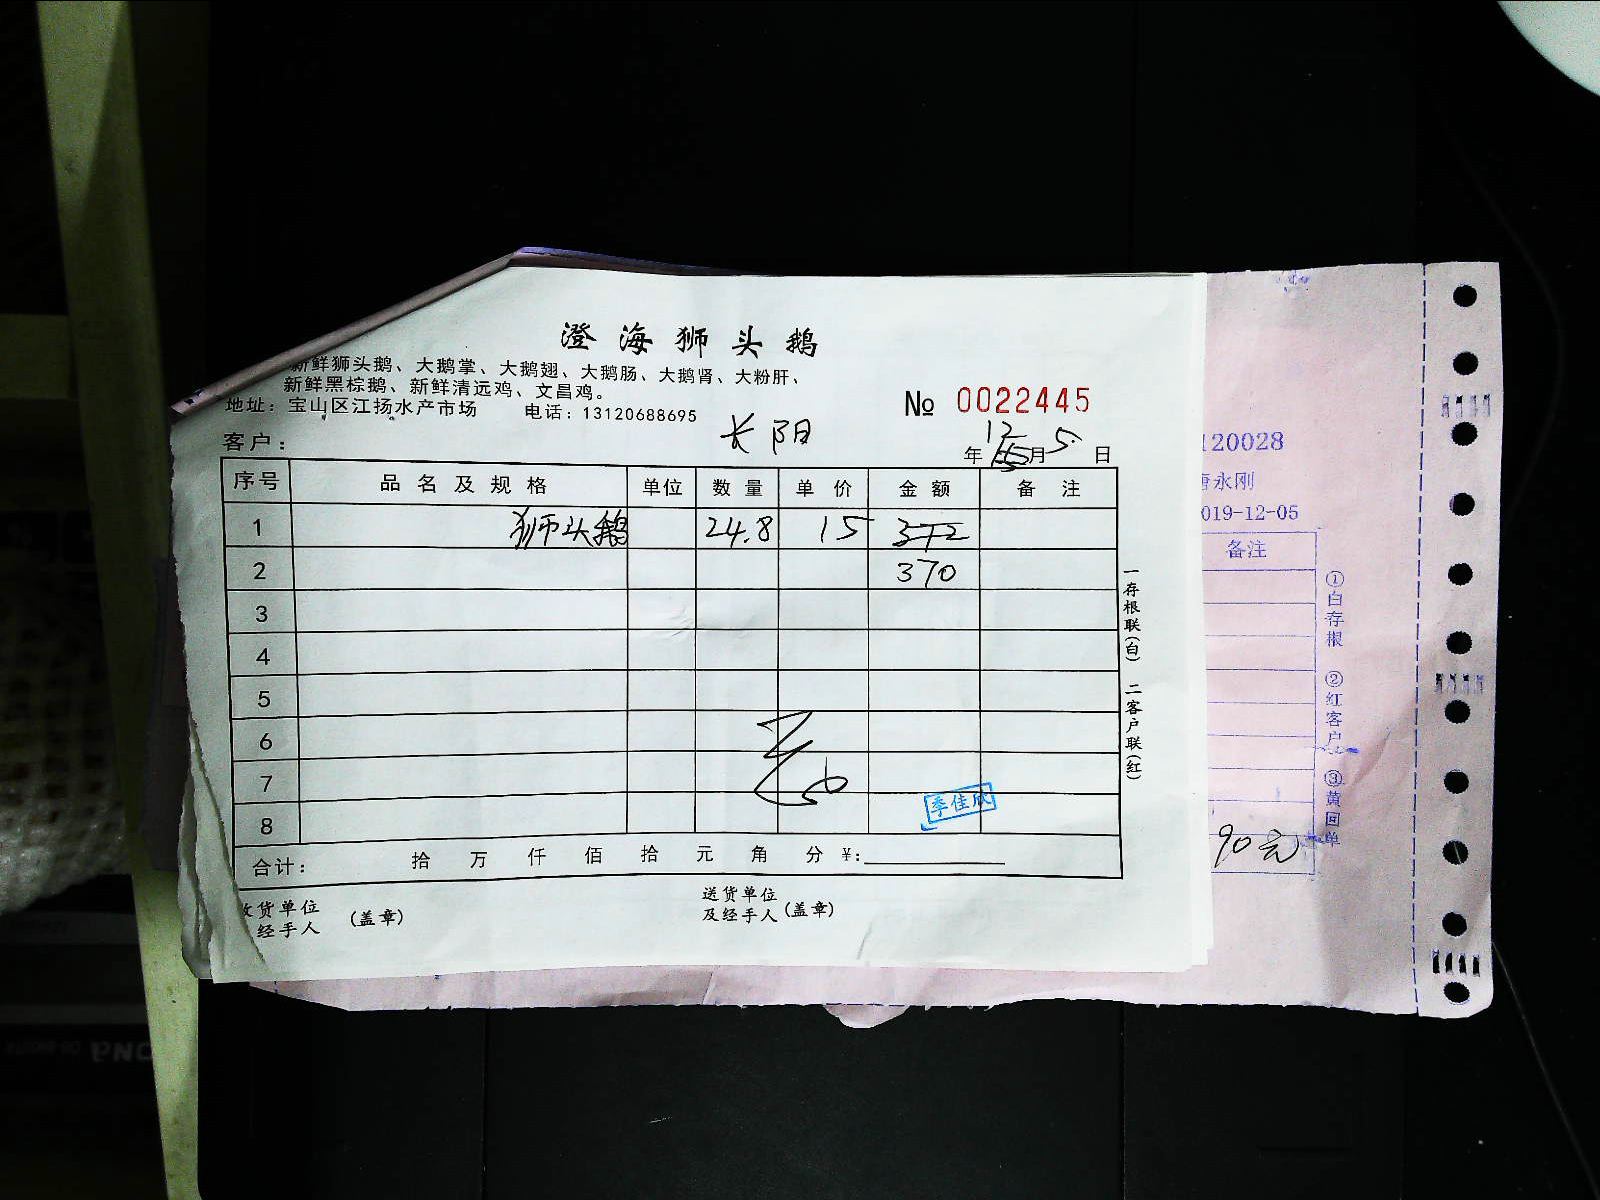 澄海狮头鹅
新鲜狮头鹅、大鹅掌、大鹅翅、大鹅肠、大鹅肾、大粉肝、
新鲜黑棕鹅、新鲜清远鸡、文昌鸡。
地址：宝山区江扬水产市场 电话：13120688695
№ 0022445
客户： 长阳 年 12月 5 日
序号 品名及规格 单位 数量 单价 金额 备注
1 狮头鹅 24.8 15 372
2 370
3
4
5
6
7
8
季佳欣
合计： 拾 万 仟 佰 拾 元 角 分 ¥:
收货单位
经手人 (盖章)
送货单位
及经手人 (盖章)
一存根联(白) 二客户联(红)
120028
唐永刚
019-12-05
备注
①白存根 ②红客户 ③黄回单
90元